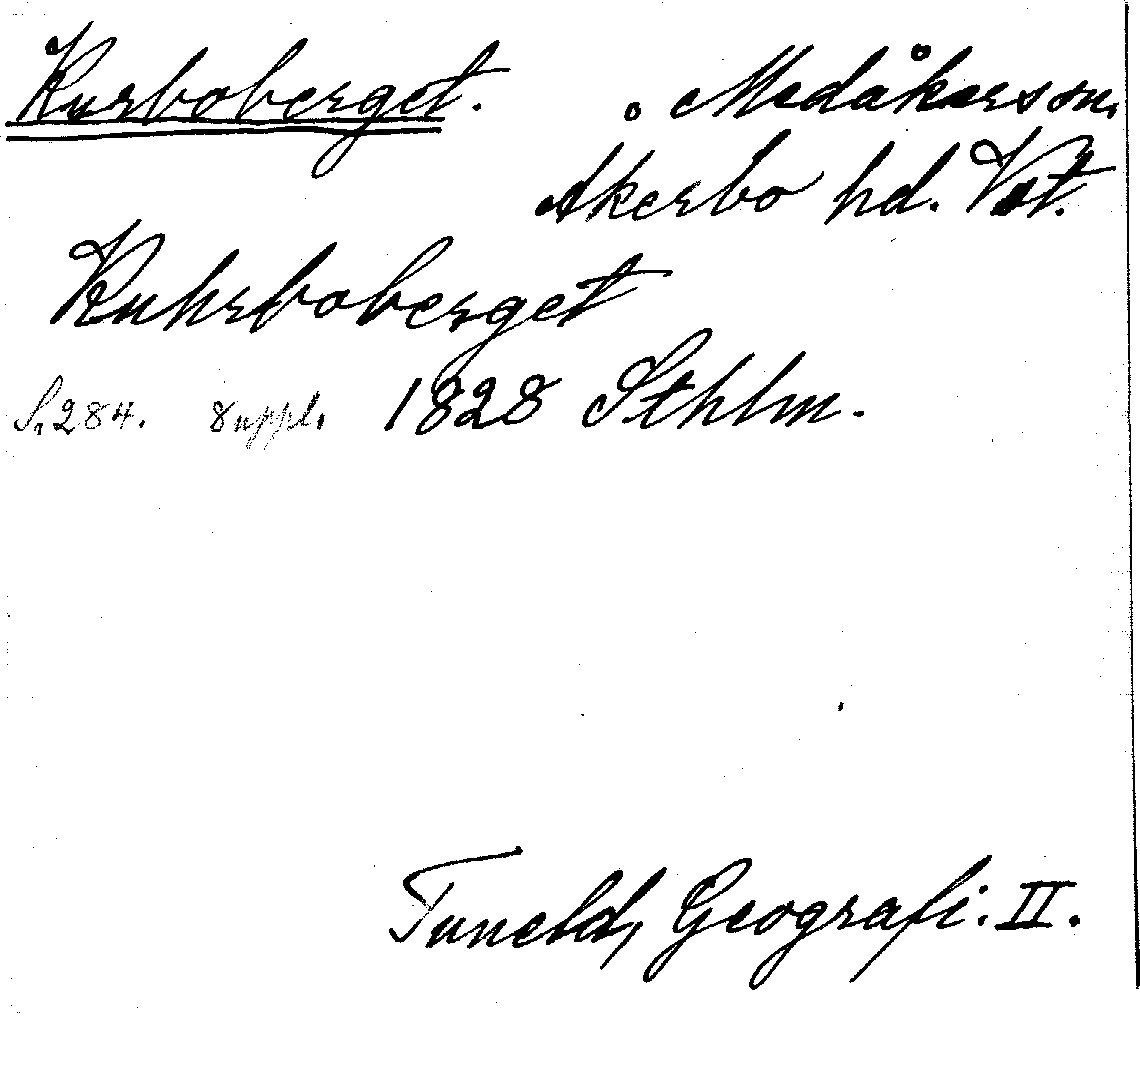 Kurboberget. Medåkers sn,
Åkerbo hd. Vstm.
Kuhrboberget
S. 284. Suppl. 1828 Sthlm.
Tuneld, Geografi. II.